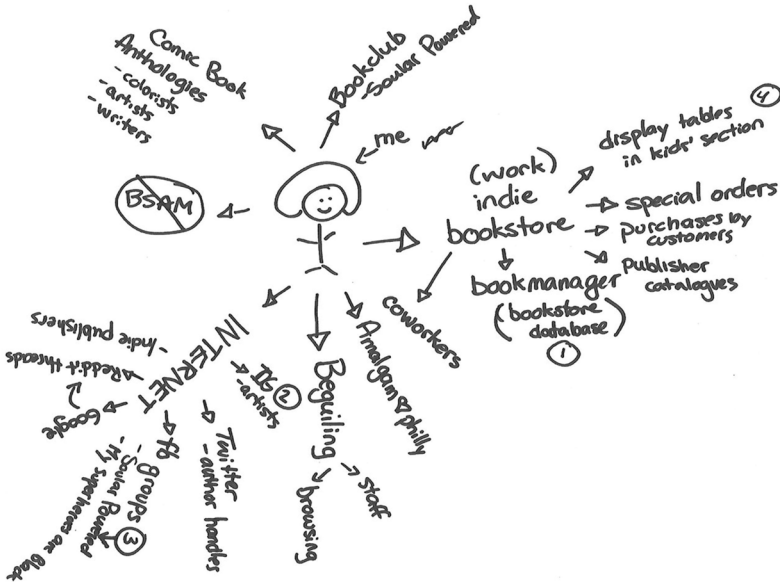 Comic Book
Anthologies
- colorists
- artists
- writers
Bookclub
- Soular Powered
me
BSAM
(work)
indie
bookstore
④
display tables
in kids' section
special orders
purchases by
customers
publisher
catalogues
bookmanager
(bookstore
database)
①
coworkers
Amalgam philly
Beguiling
staff
browsing
INTERNET
IG ②
- artists
Twitter
- author handles
fb groups
- Soular Powered ③
- My superheroes are Black
Google
Reddit threads
- Indie publishers